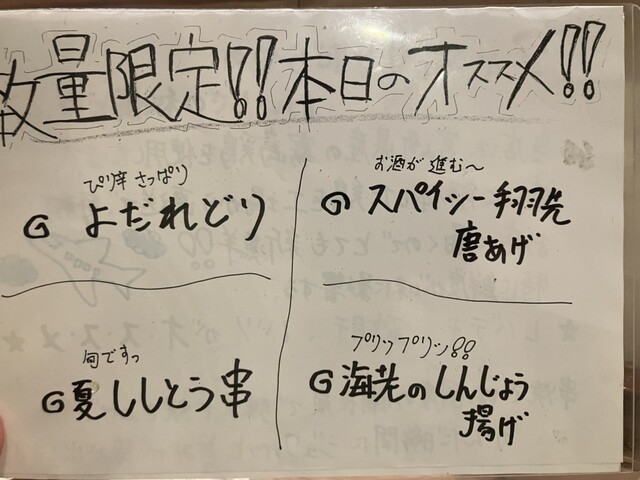 数量限定!!本日のオススメ!!
ぴり辛 さっぱり
よだれどり
お酒が進む〜
スパイシー手羽先
唐あげ
旬ですっ
夏ししとう串
プリップリッ!!
海老のしんじょう
揚げ